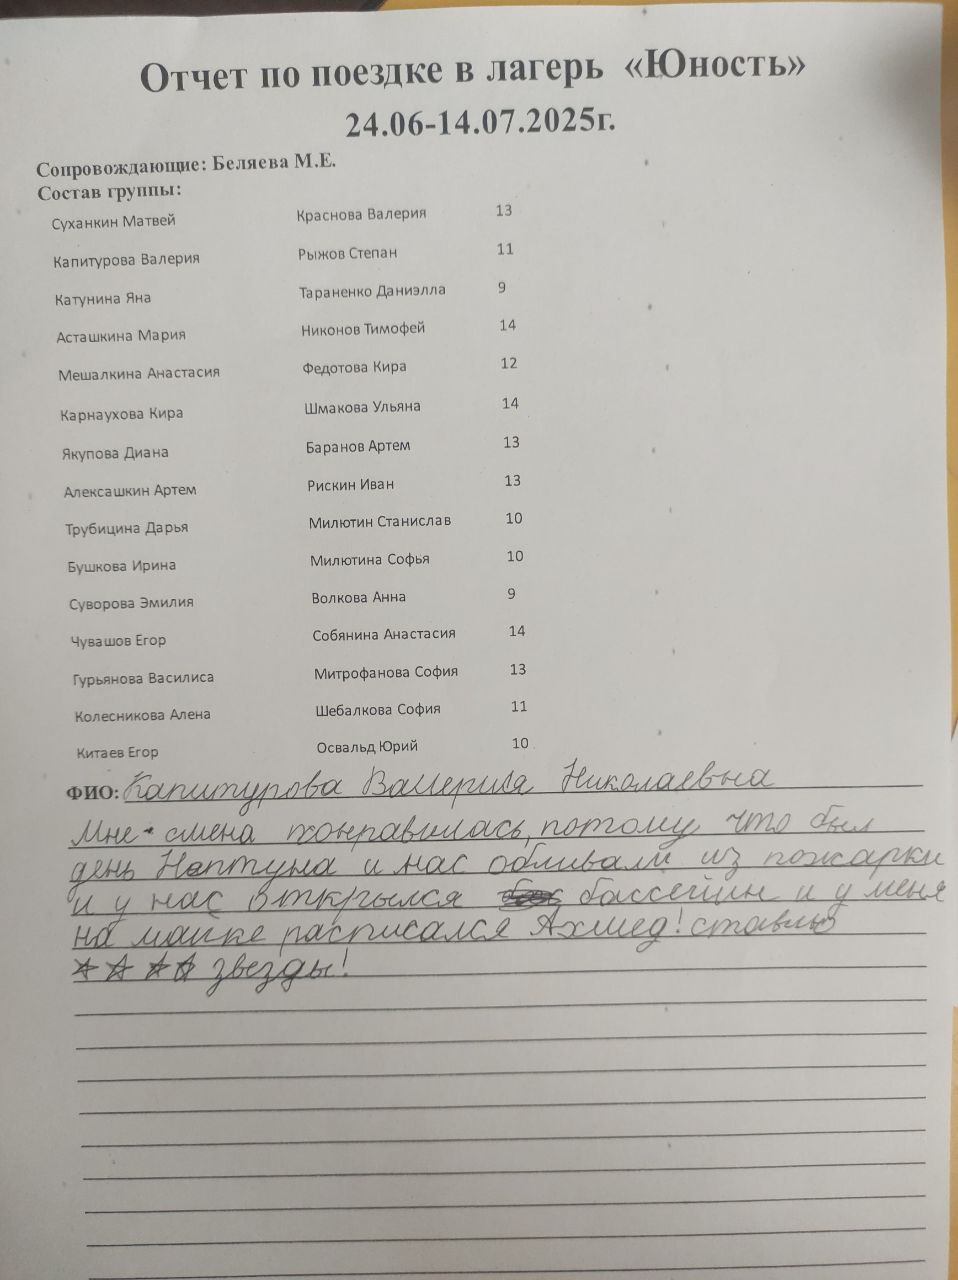 Отчет по поездке в лагерь «Юность»
24.06-14.07.2025г.
Сопровождающие: Беляева М.Е.
Состав группы:
Суханкин Матвей Краснова Валерия 13
Капитурова Валерия Рыжов Степан 11
Катунина Яна Тараненко Даниэлла 9
Асташкина Мария Никонов Тимофей 14
Мешалкина Анастасия Федотова Кира 12
Карнаухова Кира Шмакова Ульяна 14
Якупова Диана Баранов Артем 13
Алексашкин Артем Рискин Иван 13
Трубицина Дарья Милютин Станислав 10
Бушкова Ирина Милютина Софья 10
Суворова Эмилия Волкова Анна 9
Чувашов Егор Собянина Анастасия 14
Гурьянова Василиса Митрофанова София 13
Колесникова Алена Шебалкова София 11
Китаев Егор Освальд Юрий 10
ФИО: Капитурова Валерия Николаевна
Мне смена понравилась, потому что был
день Нептуна и нас обливали из пожарки
и у нас открылся бассейин и у меня
на майке расписался Ахмед! ставлю
☆☆☆☆ звезды!